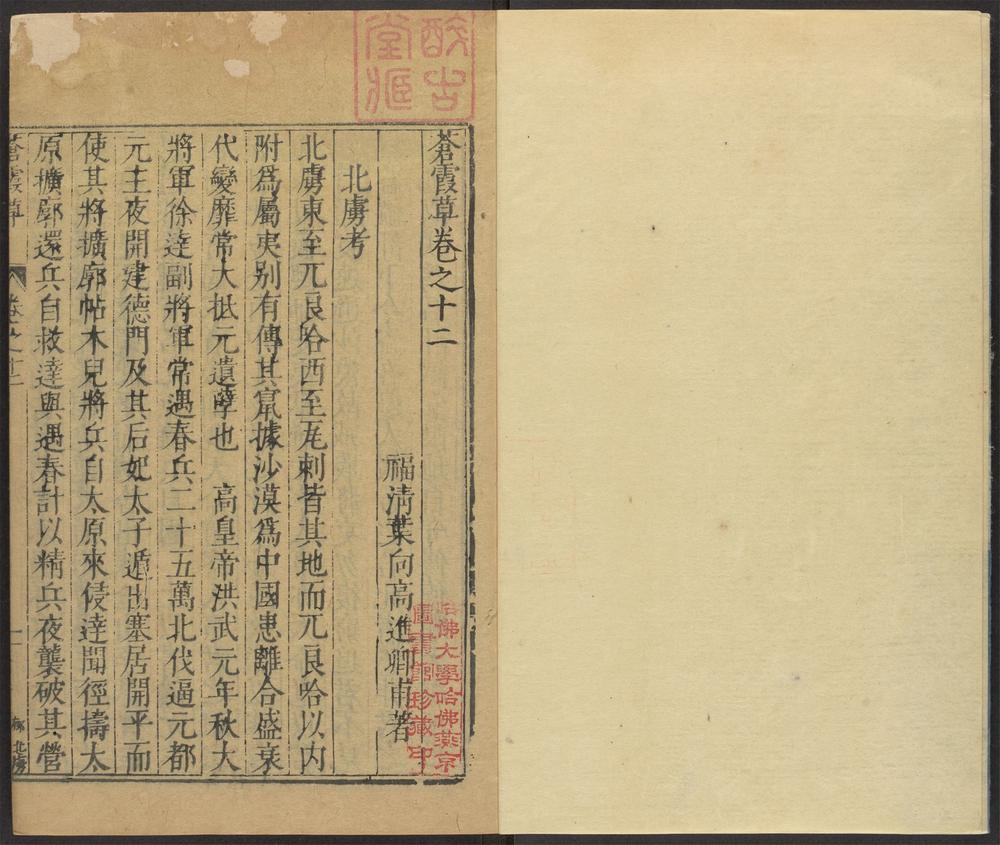 蒼霞草卷之十二
福清葉向高進卿甫著
北虜考
北虜東至兀良哈西至瓦剌皆其地而兀良哈以内
附爲屬夷别有傳其竄據沙漠爲中國患離合盛衰
代變靡常大抵元遺孽也 高皇帝洪武元年秋大
將軍徐逹副將軍常遇春兵二十五萬北伐逼元都
元主夜開建德門及其后妃太子遁出塞居開平而
使其將擴廓帖木兒將兵自太原來侵逹聞徑擣太
原擴廓還兵自救達與遇春計以精兵夜襲破其營
蒼霞草
卷之十二
一
北虜
醉古堂
哈佛大學哈佛燕京圖書館珍藏印